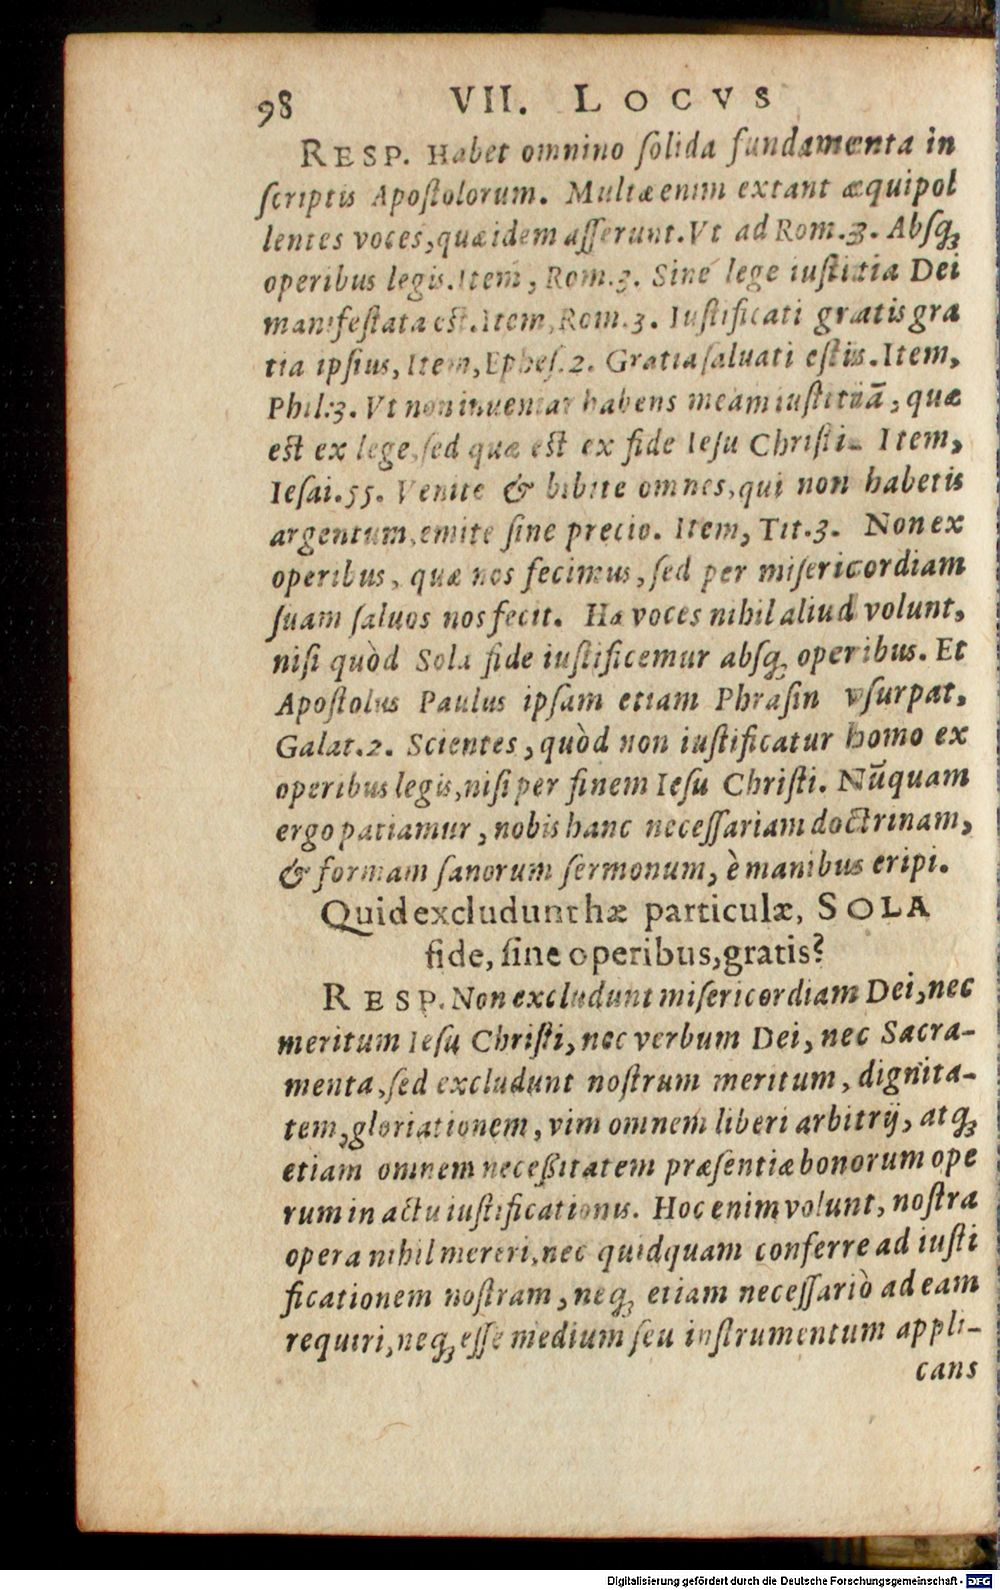 98 VII. LOCVS
RESP. Habet omnino ſolida fundamenta in
ſcriptis Apoſtolorum. Multæ enim extant æquipol
lentes voces, quæ idem aſſerunt. Vt ad Rom. 3. Abſq;
operibus legis. Item, Rom. 3. Sine lege iuſtitia Dei
manifeſtata eſt. Item, Rom. 3. Iuſtificati gratis gra
tia ipſius, Item, Epheſ. 2. Gratia ſaluati eſtis. Item,
Phil: 3. Vt non inueniar habens meam iuſtitiā, quæ
eſt ex lege, ſed quæ eſt ex fide Ieſu Chriſti. Item,
Ieſai. 55. Venite & bibite omnes, qui non habetis
argentum, emite ſine precio. Item, Tit. 3. Non ex
operibus, quæ nos fecimus, ſed per miſericordiam
ſuam ſaluos nos fecit. Hæ voces nihil aliud volunt,
niſi quòd Sola fide iuſtificemur abſq; operibus. Et
Apoſtolus Paulus ipſam etiam Phraſin vſurpat,
Galat. 2. Scientes, quòd non iuſtificatur homo ex
operibus legis, niſi per finem Ieſu Chriſti. Nūquam
ergo patiamur, nobis hanc neceſſariam doctrinam,
& formam ſanorum ſermonum, è manibus eripi.
Quid excludunt hæ particulæ, SOLA
fide, ſine operibus, gratis?
RESP. Non excludunt miſericordiam Dei, nec
meritum Ieſu Chriſti, nec verbum Dei, nec Sacra-
menta, ſed excludunt noſtrum meritum, dignita-
tem, gloriationem, vim omnem liberi arbitrij, atq;
etiam omnem neceßitatem præſentiæ bonorum ope
rum in actu iuſtificationis. Hoc enim volunt, noſtra
opera nihil mereri, nec quidquam conferre ad iuſti
ficationem noſtram, neq; etiam neceſſariò ad eam
requiri, neq; eſſe medium ſeu inſtrumentum appli-
cans
Digitalisierung gefördert durch die Deutsche Forschungsgemeinschaft - DFG